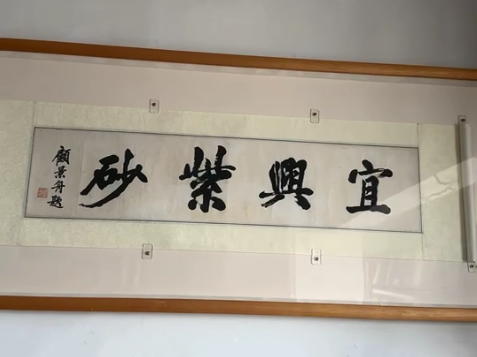 宜興紫砂
顧景舟題